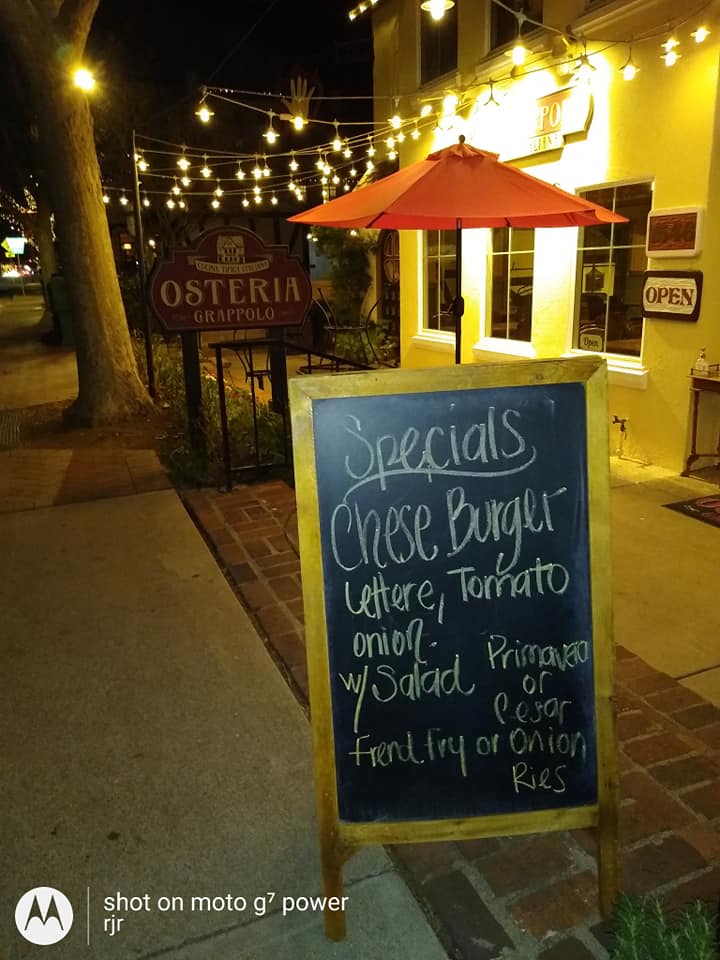 CUCINA TIPICA ITALIANA
OSTERIA
GRAPPOLO
OPEN
Open
Specials
Chese Burger
Lettere, Tomato
onion.
w/ Salad Primavera
or
Cesar
Frend Fry or Onion
Ries
shot on moto g⁷ power
rjr